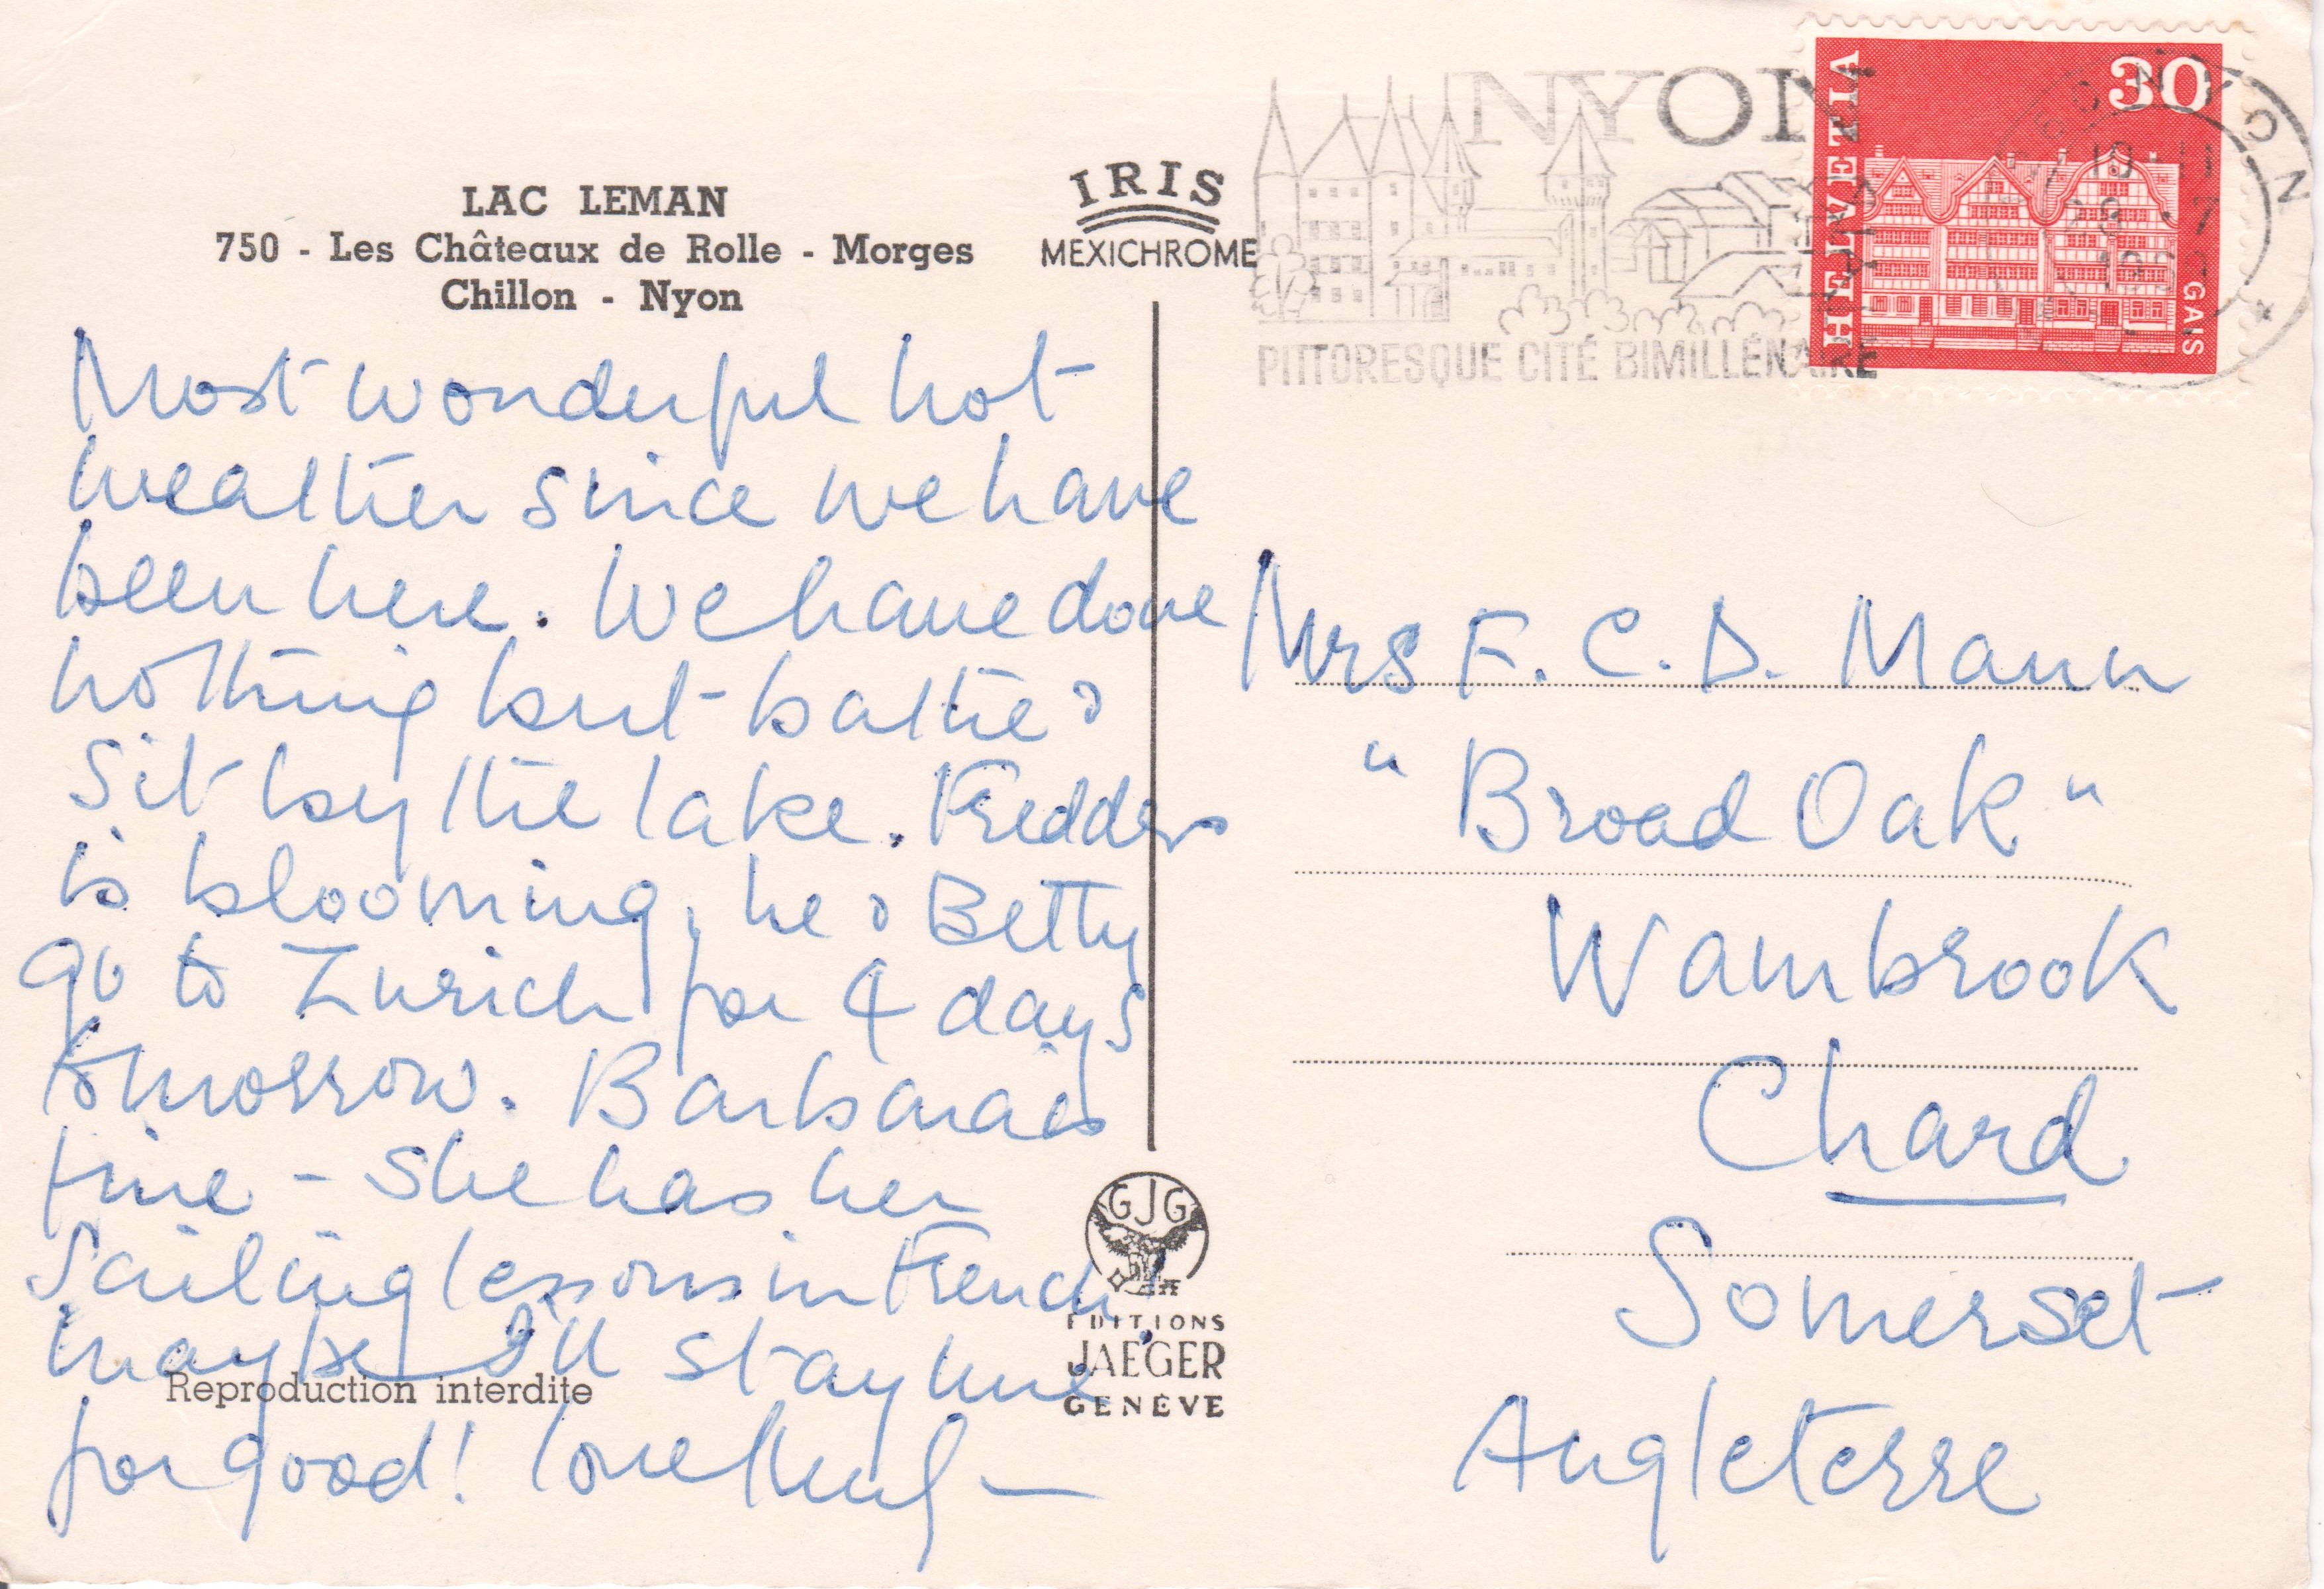 LAC LEMAN
750 - Les Châteaux de Rolle - Morges
Chillon - Nyon
IRIS
MEXICHROME
NYON
PITTORESQUE CITÉ BIMILLÉNAIRE
HELVETIA
30
GAIS
NYON
Most wonderful hot
weather since we have
been here. We have done
nothing but bathe &
sit by the lake. Fredders
is blooming, he & Betty
go to Zurich for 4 days
tomorrow. Barbara is
fine - she has her
Sailing lessons in French,
maybe I'll stay here
for good! love
Mrs F. C. D. Mann
"Broad Oak"
Wambrook
Chard
Somerset
Angleterre
GJG
EDITIONS
JAEGER
GENÈVE
Reproduction interdite